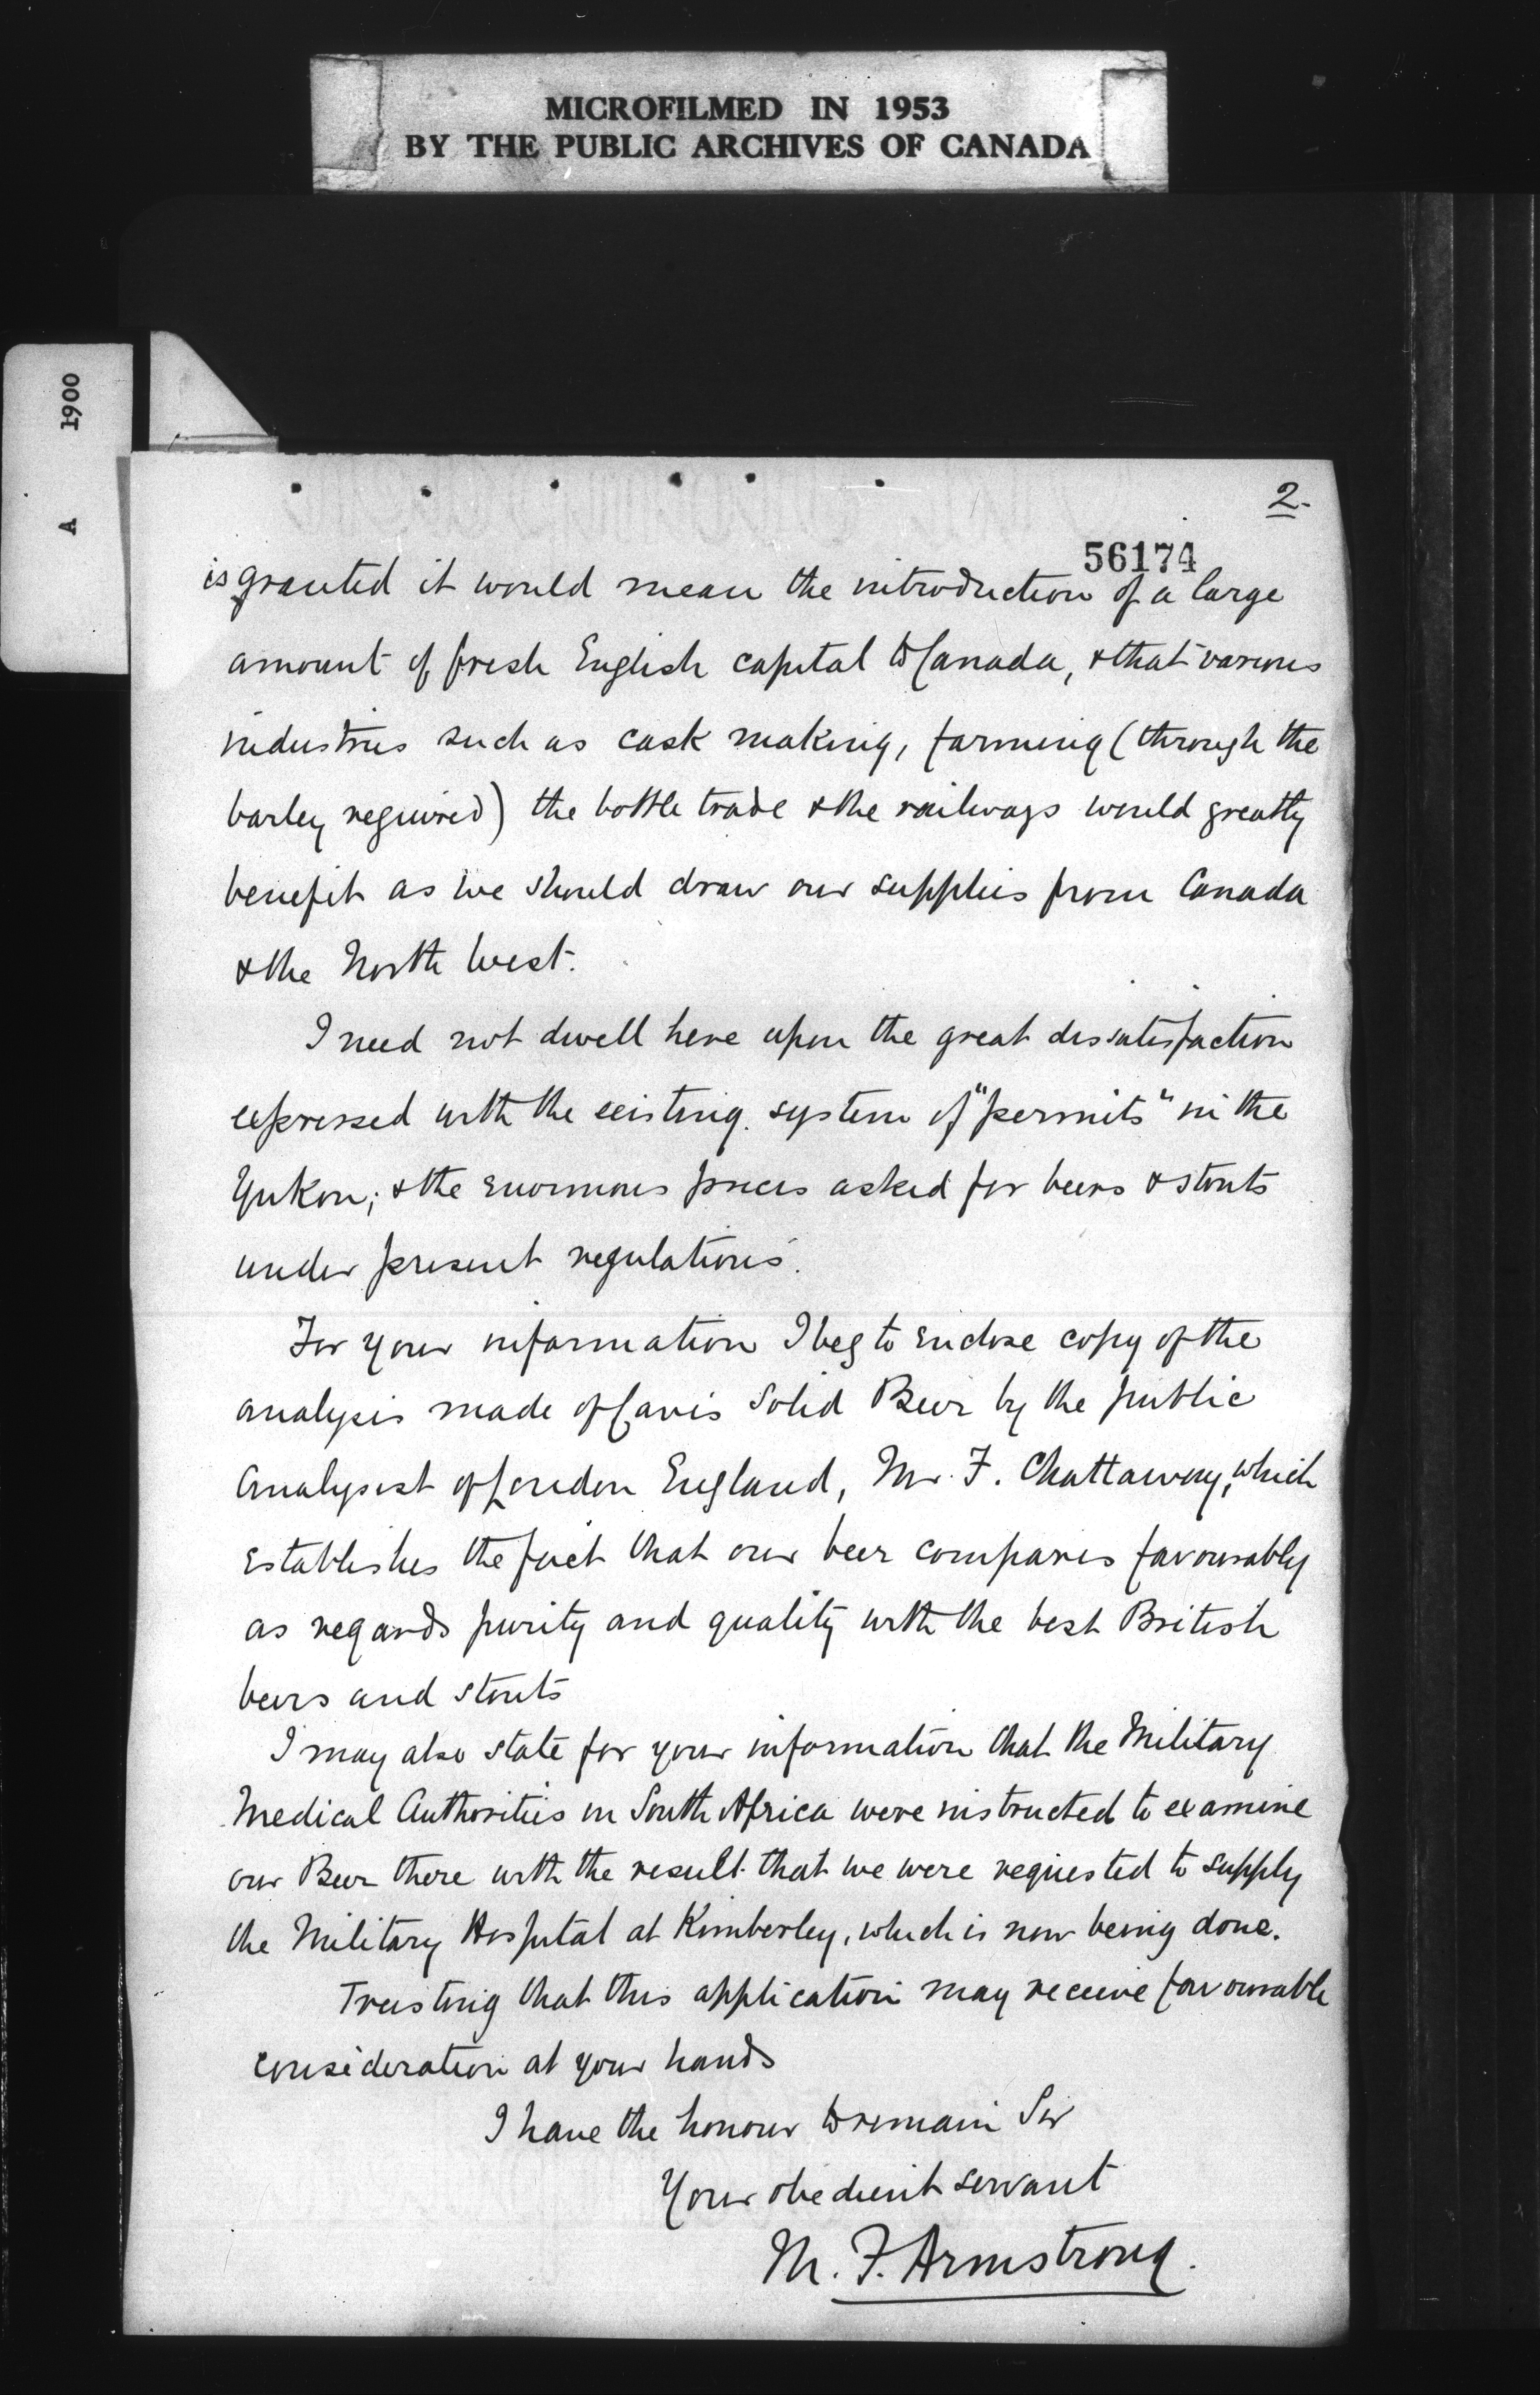 MICROFILMED IN 1953
BY THE PUBLIC ARCHIVES OF CANADA
A 1900
2.
56174
is granted it would mean the introduction of a large
amount of fresh English capital to Canada, & that various
industries such as cask making, farming (through the
barley required) the bottle trade & the railways would greatly
benefit as we should draw our supplies from Canada
& the North West.
I need not dwell here upon the great dissatisfaction
expressed with the existing system of "permits" in the
Yukon; & the enormous prices asked for beers & stouts
under present regulations.
For your information I beg to enclose copy of the
analysis made of Cavis Solid Beer by the public
Analysist of London England, Mr. F. Chattaway, which
establishes the fact that our beer compares favourably
as regards purity and quality with the best British
beers and stouts
I may also state for your information that the Military
Medical Authorities in South Africa were instructed to examine
our Beer there with the result that we were requested to supply
the Military Hospital at Kimberley, which is now being done.
Trusting that this application may receive favourable
consideration at your hands
I have the honour to remain Sir
Your obedient servant
M. F. Armstrong.